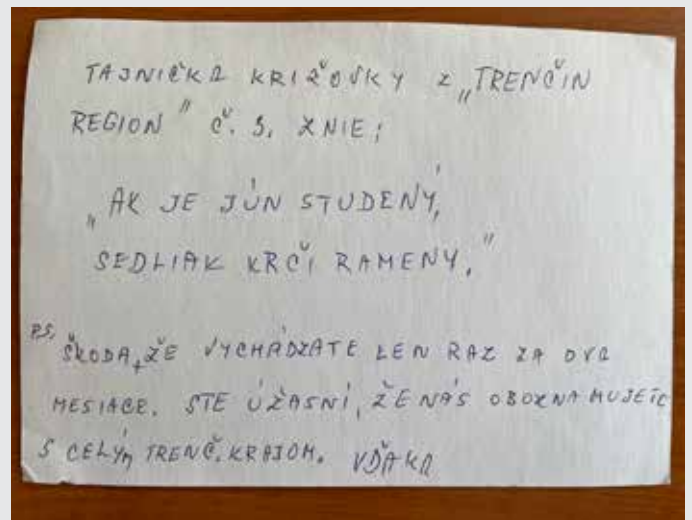 TAJNIČKA KRIŽOVKY Z „TRENČIN
REGION" Č. 3. ZNIE:
„AK JE JÚN STUDENÝ,
SEDLIAK KRČÍ RAMENY."
P.S. ŠKODA, ŽE VYCHÁDZATE LEN RAZ ZA DVA
MESIACE. STE ÚŽASNÍ, ŽE NÁS OBOZNAMUJETE
S CELÝM TRENČ. KRAJOM. VĎAKA